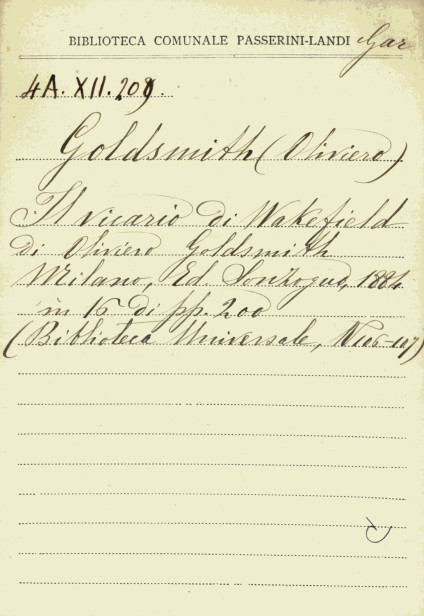 BIBLIOTECA COMUNALE PASSERINI-LANDI Gar
4A. XII. 209.
Goldsmith (Oliviero)
Il vicario di Wakefield
di Oliviero Goldsmith
Milano, Ed. Sonzogno, 1884
in 16 di pp. 200
(Biblioteca Universale, N. 106-107)